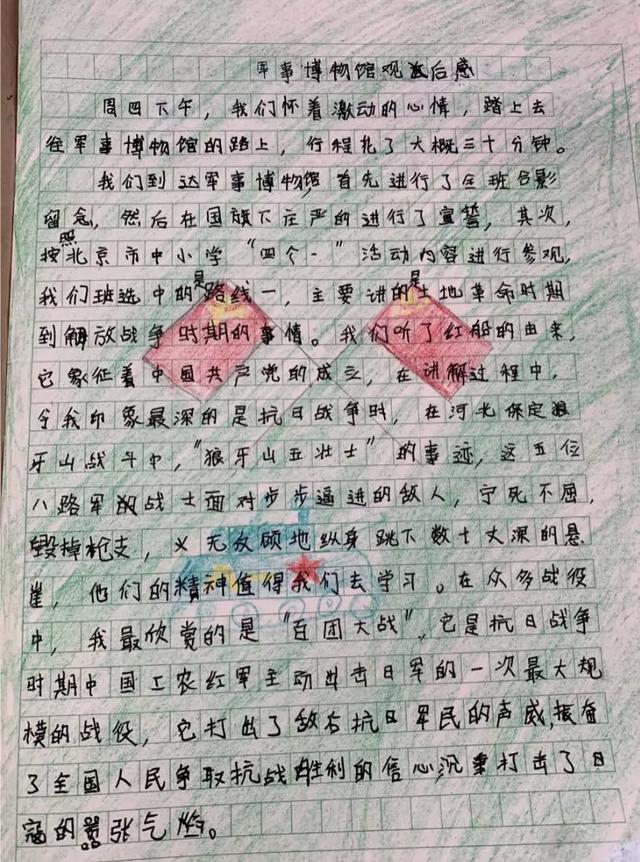 军事博物馆观后感
周四下午，我们怀着激动的心情，踏上去
往军事博物馆的路上，行程花了大概三十分钟。
我们到达军事博物馆，首先进行了全班合影
留念，然后在国旗下庄严的进行了宣誓，其次，
按照北京市中小学“四个一”活动内容进行参观，
我们班选中的是路线一，主要讲的是土地革命时期
到解放战争时期的事情。我们听了红船的由来，
它象征着中国共产党的成立，在讲解过程中，
令我印象最深的是抗日战争时，在河北保定狼
牙山战斗中，“狼牙山五壮士”的事迹，这五位
八路军的战士面对步步逼进的敌人，宁死不屈，
毁掉枪支，义无反顾地纵身跳下数十丈深的悬
崖，他们的精神值得我们去学习。在众多战役
中，我最欣赏的是“百团大战”，它是抗日战争
时期中国工农红军主动出击日军的一次最大规
模的战役，它打出了敌后抗日军民的声威，振奋
了全国人民争取抗战胜利的信心，沉重打击了日
寇的嚣张气焰。